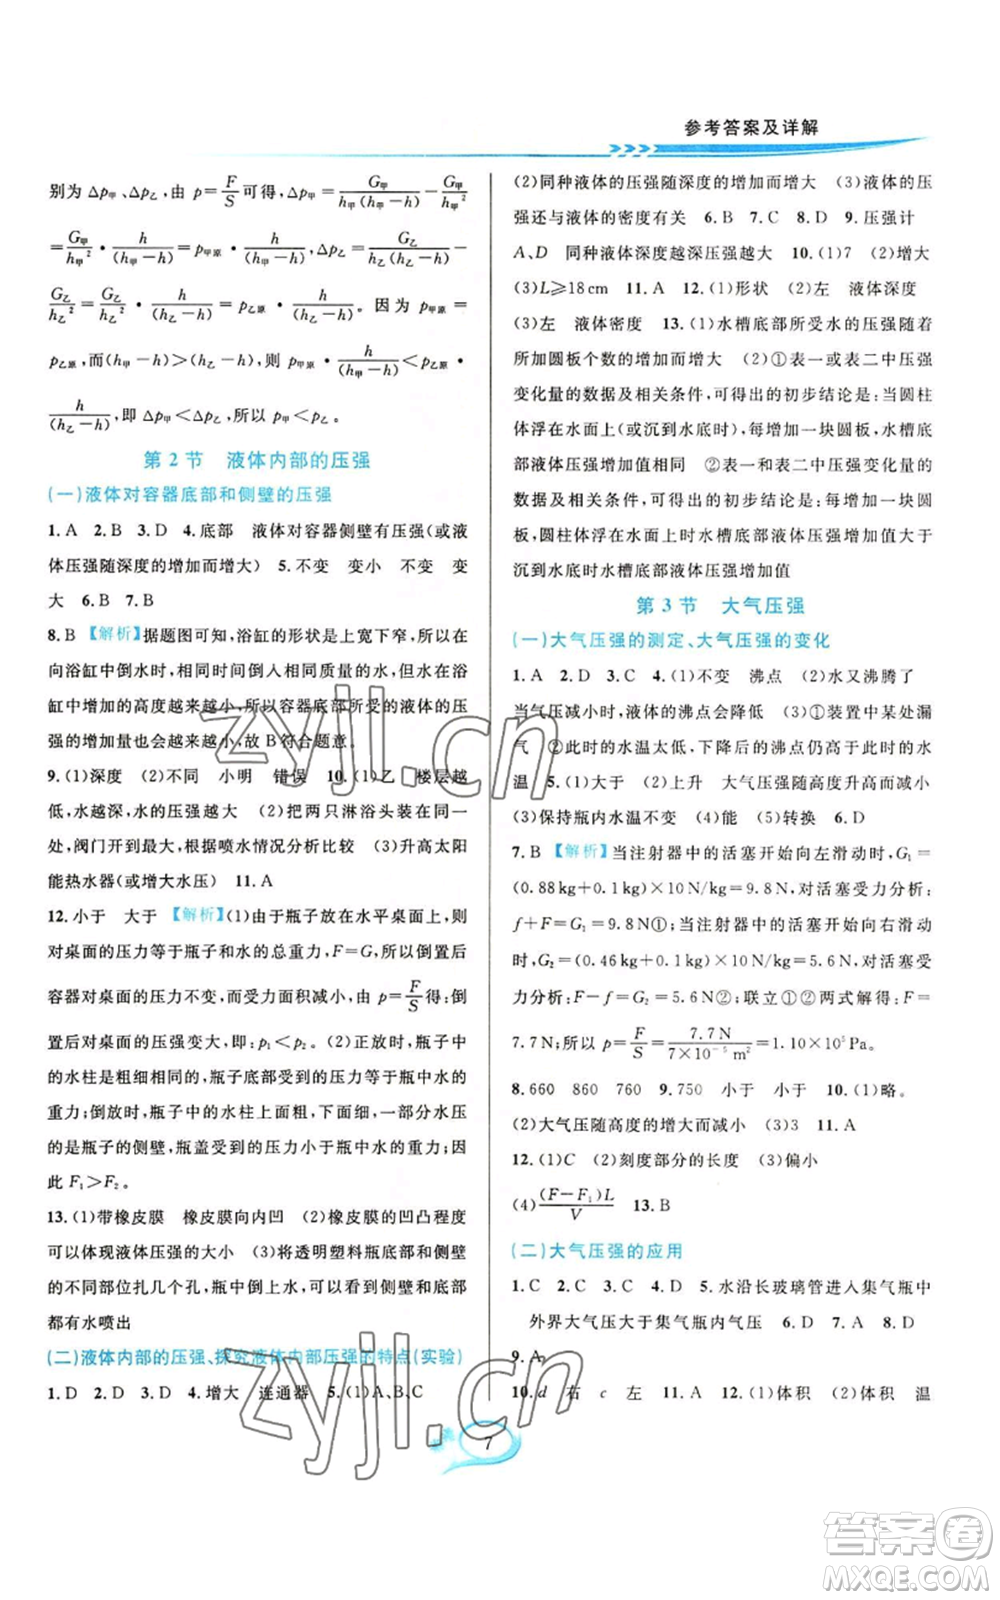 参考答案及详解
别为 Δp甲、Δp乙,由 p=F/S 可得,Δp甲=G甲/(h甲(h甲-h))-G甲/h甲²
=G甲/h甲²·h/(h甲-h)=p甲原·h/(h甲-h),Δp乙=G乙/(h乙(h乙-h))-
G乙/h乙²=G乙/h乙²·h/(h乙-h)=p乙原·h/(h乙-h)。因为 p甲原<
p乙原,而(h甲-h)>(h乙-h),则 p甲原·h/(h甲-h)<p乙原·
h/(h乙-h),即 Δp甲<Δp乙,所以 p甲<p乙。
第2节 液体内部的压强
(一)液体对容器底部和侧壁的压强
1.A 2.B 3.D 4.底部 液体对容器侧壁有压强(或液
体压强随深度的增加而增大) 5.不变 变小 不变 变
大 6.B 7.B
8.B 【解析】据题图可知,浴缸的形状上宽下窄,所以在
向浴缸中倒水时,相同时间倒入相同质量的水,水在浴
缸中增加的高度越来越小,所以容器底部所受的液体的压
强的增加量也会越来越小,故B符合题意。
9.(1)深度 (2)不同 小明 错误 10.(1)乙 楼层越
低,水越深,水的压强越大 (2)把两只淋浴头装在一
处,阀门开到最大,根据喷水情况分析比较 (3)升高太阳
能热水器(或增大水压) 11.A
12.小于 大于 【解析】(1)由于瓶子放在水平桌面上,则
对桌面的压力等于瓶子和水的总重力,F=G,所以倒置后
容器对桌面的压力不变,而受力面积减小,由 p=F/S得:倒
置后对桌面的压强变大,即:p₁<p₂。(2)正放时,瓶子中
的水柱是粗细相同的,瓶子底部受到的压力等于瓶中水的
重力;倒放时,瓶子中的水柱上面粗,一部分水压
的是瓶子的侧壁,瓶盖受到的压力小于瓶中水的重力;因
此 F₁>F₂。
13.(1)带橡皮膜 橡皮膜向内凹 (2)橡皮膜的凹凸程度
可以体现液体压强的大小 (3)将透明塑料瓶底部和侧壁
的不同部位扎几个孔,瓶中倒上水,可以看到侧壁和底部
都有水喷出
(二)液体内部的压强、探究液体内部压强的特点(实验)
1.D 2.B 3.A 4.增大 连通器 5.(1)A、B、C
(2)同种液体的压强随深度的增加而增大 (3)液体的压
强还与液体的密度有关 6.B 7.C 8.D 9.压强计
A、D 同种液体深度越深压强越大 10.(1)7 (2)增大
(3)L≥18cm 11.A 12.(1)形状 (2)左 液体深度
(3)左 液体密度 13.(1)水槽底部所受水的压强随着
所加圆板个数的增加而增大 (2)①表一或表二中压强
变化量的数据及相关条件,可得出的初步结论是:当圆柱
体浮在水面上(或沉到水底)时,每增加一块圆板,水槽底
部液体压强增加值相同 ②表一和表二中压强变化量的
数据及相关条件,可得出的初步结论是:每增加一块圆
板,圆柱体浮在水面上时水槽底部液体压强增加值大于
沉到水底时水槽底部液体压强增加值
第3节 大气压强
(一)大气压强的测定、大气压强的变化
1.A 2.D 3.C 4.(1)不变 沸点 (2)水又沸腾了
当气压减小时,液体的沸点会降低 (3)①装置中某处漏
气 ②此时的水温太低,下降后的沸点仍高于此时的水
温 5.(1)大于 (2)上升 大气压强随高度升高而减小
(3)保持瓶内水温不变 (4)能 (5)转换 6.D
7.B 【解析】当注射器中的活塞开始向左滑动时,G₁=
(0.88kg+0.1kg)×10N/kg=9.8N,对活塞受力分析:
f+F=G₁=9.8N①;当注射器中的活塞开始向右滑动
时,G₂=(0.46kg+0.1kg)×10N/kg=5.6N,对活塞受
力分析:F-f=G₂=5.6N②;联立①②两式解得:F=
7.7N;所以 p=F/S=7.7N/(7×10⁻⁵m²)=1.10×10⁵Pa。
8.660 860 760 9.750 小于 小于 10.(1)略。
(2)大气压随高度的增大而减小 (3)3 11.A
12.(1)C (2)刻度部分的长度 (3)偏小
(4)(F-F₁)L/V 13.B
(二)大气压强的应用
1.C 2.C 3.D 4.D 5.水沿长玻璃管进入集气瓶中
外界大气压大于集气瓶内气压 6.D 7.A 8.D
9.A
10.d 右 c 左 11.A 12.(1)体积 (2)体积 温
7
zyjl.cn
zyjl.cn
答案卷
MXQE.COM